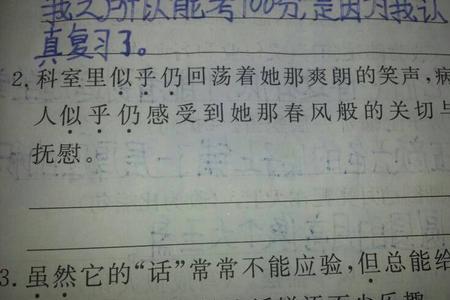 我之所以能考100分,是因为我认
真复习了。
2. 科室里似乎仍回荡着她那爽朗的笑声,病
人似乎仍感受到她那春风般的关切与
抚慰。
3. 虽然它的“话”常常不能应验,但总能给